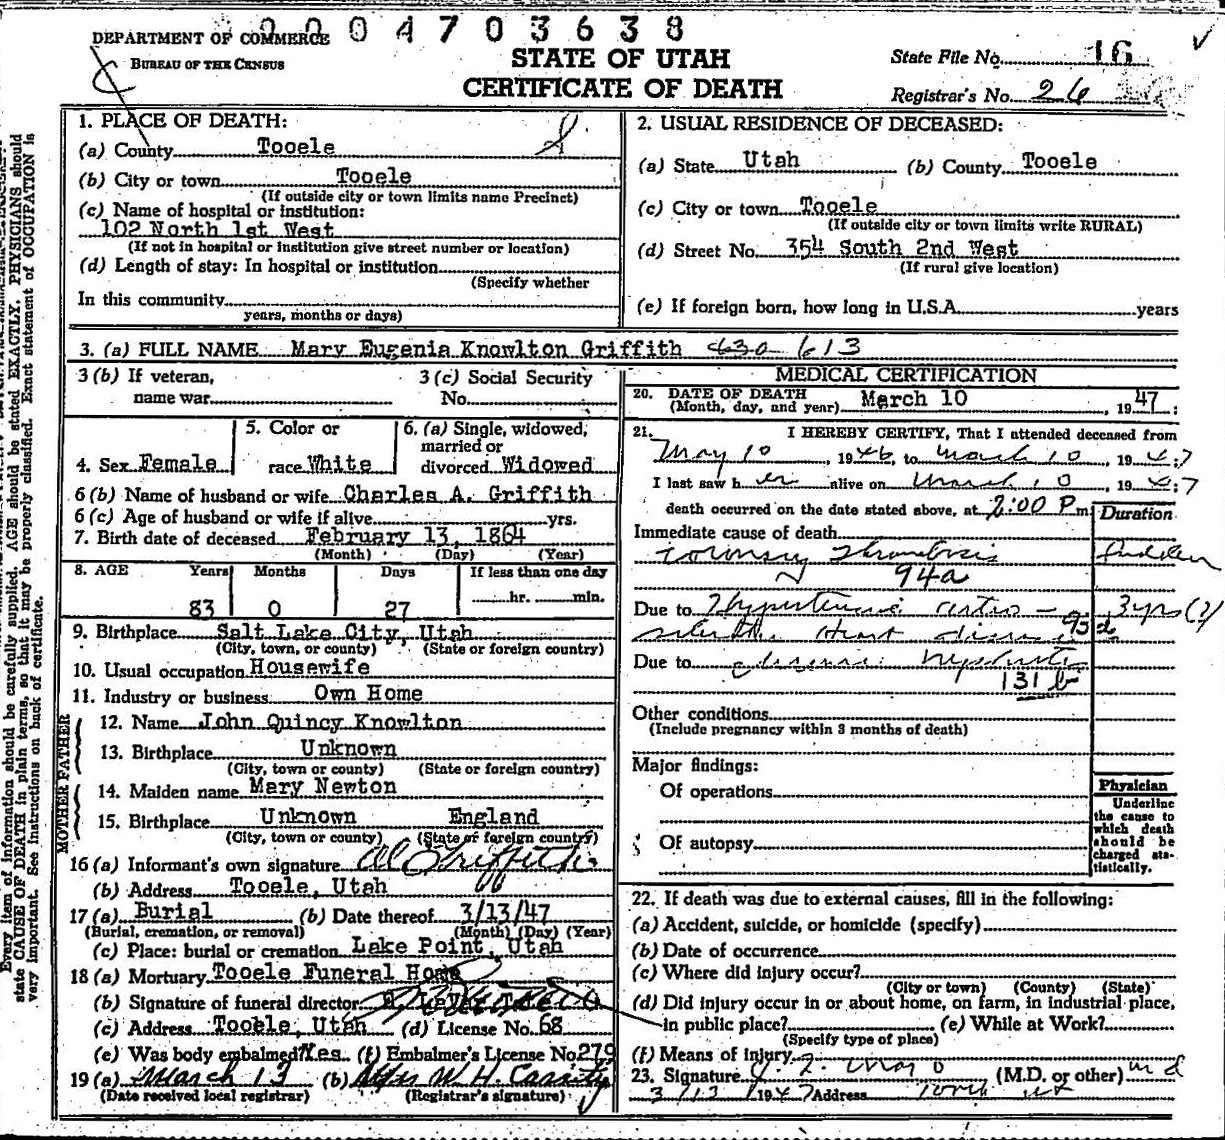 0004703638
DEPARTMENT OF COMMERCE
BUREAU OF THE CENSUS
STATE OF UTAH
CERTIFICATE OF DEATH
State File No. 16
Registrar's No. 26
1. PLACE OF DEATH:
(a) County Tooele
(b) City or town Tooele
(If outside city or town limits name Precinct)
(c) Name of hospital or institution:
102 North 1st West
(If not in hospital or institution give street number or location)
(d) Length of stay: In hospital or institution
(Specify whether
In this community
years, months or days)
2. USUAL RESIDENCE OF DECEASED:
(a) State Utah (b) County Tooele
(c) City or town Tooele
(If outside city or town limits write RURAL)
(d) Street No. 354 South 2nd West
(If rural give location)
(e) If foreign born, how long in U.S.A. years
3. (a) FULL NAME Mary Eugenia Knowlton Griffith 630 613
3 (b) If veteran,
name war
3 (c) Social Security
No.
4. Sex Female
5. Color or
race White
6. (a) Single, widowed,
married or
divorced Widowed
6 (b) Name of husband or wife Charles A. Griffith
6 (c) Age of husband or wife if alive yrs.
7. Birth date of deceased February 13, 1864
(Month) (Day) (Year)
8. AGE Years Months Days If less than one day
83 0 27 hr. min.
9. Birthplace Salt Lake City, Utah
(City, town, or county) (State or foreign country)
10. Usual occupation Housewife
11. Industry or business Own Home
FATHER
12. Name John Quincy Knowlton
13. Birthplace Unknown
(City, town or county) (State or foreign country)
MOTHER
14. Maiden name Mary Newton
15. Birthplace Unknown England
(City, town or county) (State or foreign country)
16 (a) Informant's own signature Al Griffith
(b) Address Tooele, Utah
17 (a) Burial (b) Date thereof 3/13/47
(Burial, cremation, or removal) (Month) (Day) (Year)
(c) Place: burial or cremation Lake Point, Utah
18 (a) Mortuary Tooele Funeral Home
(b) Signature of funeral director:
(c) Address Tooele, Utah (d) License No. 68
(e) Was body embalmed? Yes (f) Embalmer's License No. 279
19 (a) March 13 (b) W. H. Cassity
(Date received local registrar) (Registrar's signature)
MEDICAL CERTIFICATION
20. DATE OF DEATH
(Month, day, and year) March 10, 1947:
21. I HEREBY CERTIFY, That I attended deceased from
May 10, 1946, to March 10, 1947
I last saw her alive on March 10, 1947
death occurred on the date stated above, at 2:00 P m
Duration
Immediate cause of death
Coronary Thrombosis sudden
94a
Due to Hypertensive arterio- 3 yrs (?)
sclerotic Heart disease 93d
Due to chronic nephritis
131 b
Other conditions
(Include pregnancy within 3 months of death)
Major findings:
Of operations
Of autopsy
Physician
Underline
the cause to
which death
should be
charged sta-
tistically.
22. If death was due to external causes, fill in the following:
(a) Accident, suicide, or homicide (specify)
(b) Date of occurrence
(c) Where did injury occur?
(City or town) (County) (State)
(d) Did injury occur in or about home, on farm, in industrial place,
in public place? (e) While at Work?
(Specify type of place)
(f) Means of Injury
23. Signature (M.D. or other) md
3/13 1947 Address
Every item of information should be carefully supplied. AGE should be stated EXACTLY. PHYSICIANS should
state CAUSE OF DEATH in plain terms, so that it may be properly classified. Exact statement of OCCUPATION is
very important. See instructions on back of certificate.